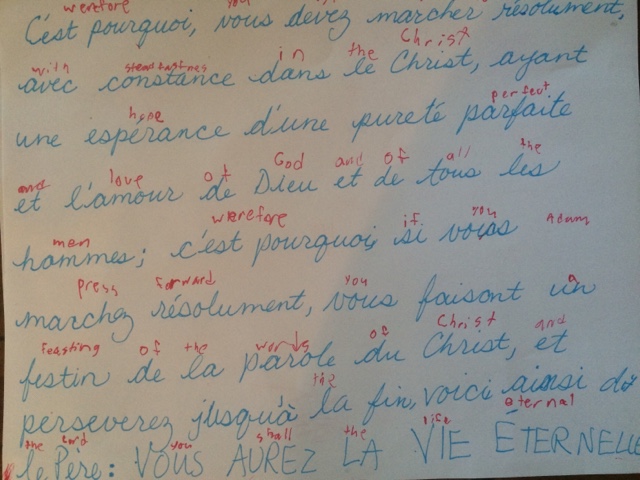 werefore you
C'est pourquoi, vous devez marcher résolument,
with steadfastnes in the Christ
avec constance dans le Christ, ayant
hope perfect
une espérance d'une pureté parfaite
and love of God and of all the
et l'amour de Dieu et de tous les
men werefore if you Adam
hommes; c'est pourquoi, si vous
press forward you a
marchez résolument, vous faisant un
feasting of the words of Christ and
festin de la parole du Christ, et
the
perseverez jusqu'à la fin, voici ainsi dit
the Lord you shall the life eternal
le Père: VOUS AUREZ LA VIE ÉTERNELLE